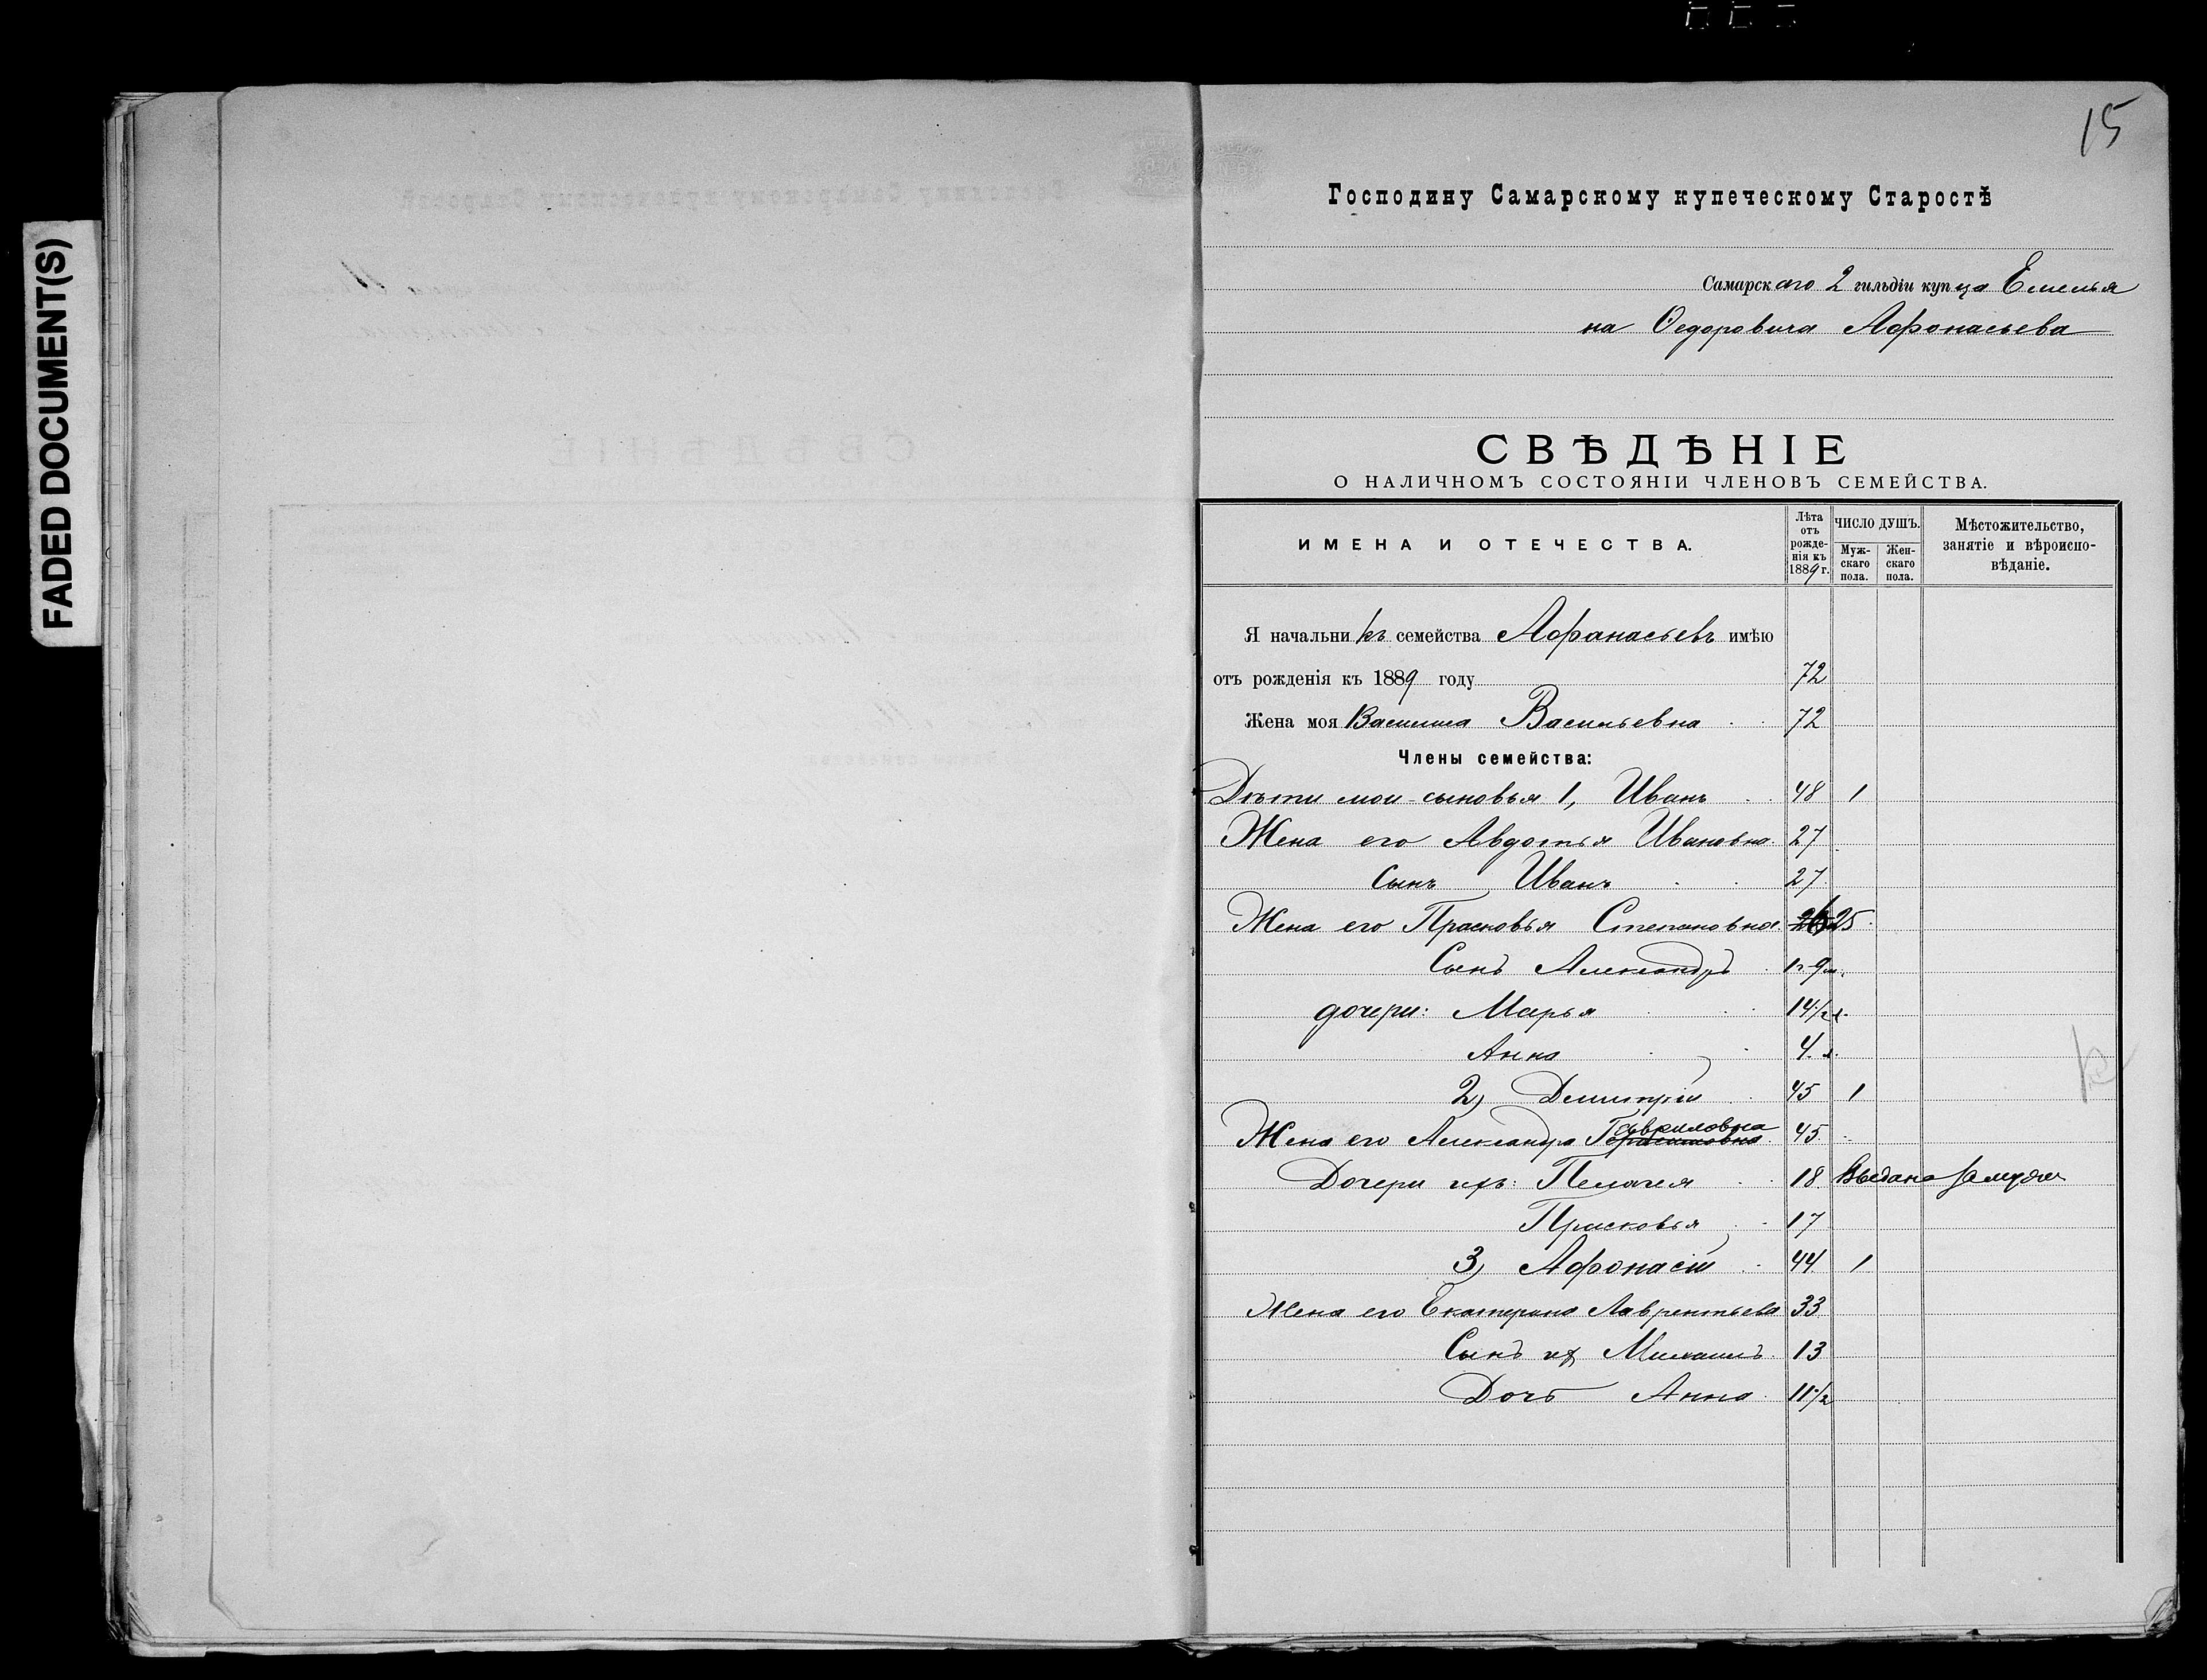 FADED DOCUMENT(S)
15
Господину Самарскому купеческому Старостѣ
Самарскаго 2 гильдіи купца Емелья
на Ѳедоровича Афонасьева
СВѢДѢНІЕ
О НАЛИЧНОМЪ СОСТОЯНІИ ЧЛЕНОВЪ СЕМЕЙСТВА.
ИМЕНА И ОТЕЧЕСТВА.
Лѣта отъ рожде-нія къ 1889 г.
ЧИСЛО ДУШЪ.
Муж-скаго пола.
Жен-скаго пола.
Мѣстожительство, занятіе и вѣроиспо-вѣданіе.
Я начальникъ семейства Афанасьевъ имѣю
отъ рожденія къ 1889 году 72
Жена моя Васильевна 72
Члены семейства:
Дѣти мои-сыновья 1, Иванъ 48 1
Жена его Авдотья Ивановна 27
Сынъ Иванъ 27
Жена его Прасковья Степановна 25
Сынъ Александръ 1 г. 9 м.
дочери: Марья 14 1/2 л.
Анна 4 л.
2) Димитрій 45 1
Жена его Александра Гавриловна 45
Дочери ихъ: Пелагея 18 Выдана замужъ
Прасковья 17
3) Афонасій 44 1
Жена его Екатерина Лаврентьева 33
Сынъ их Михаилъ 13
Дочь Анна 11 1/2